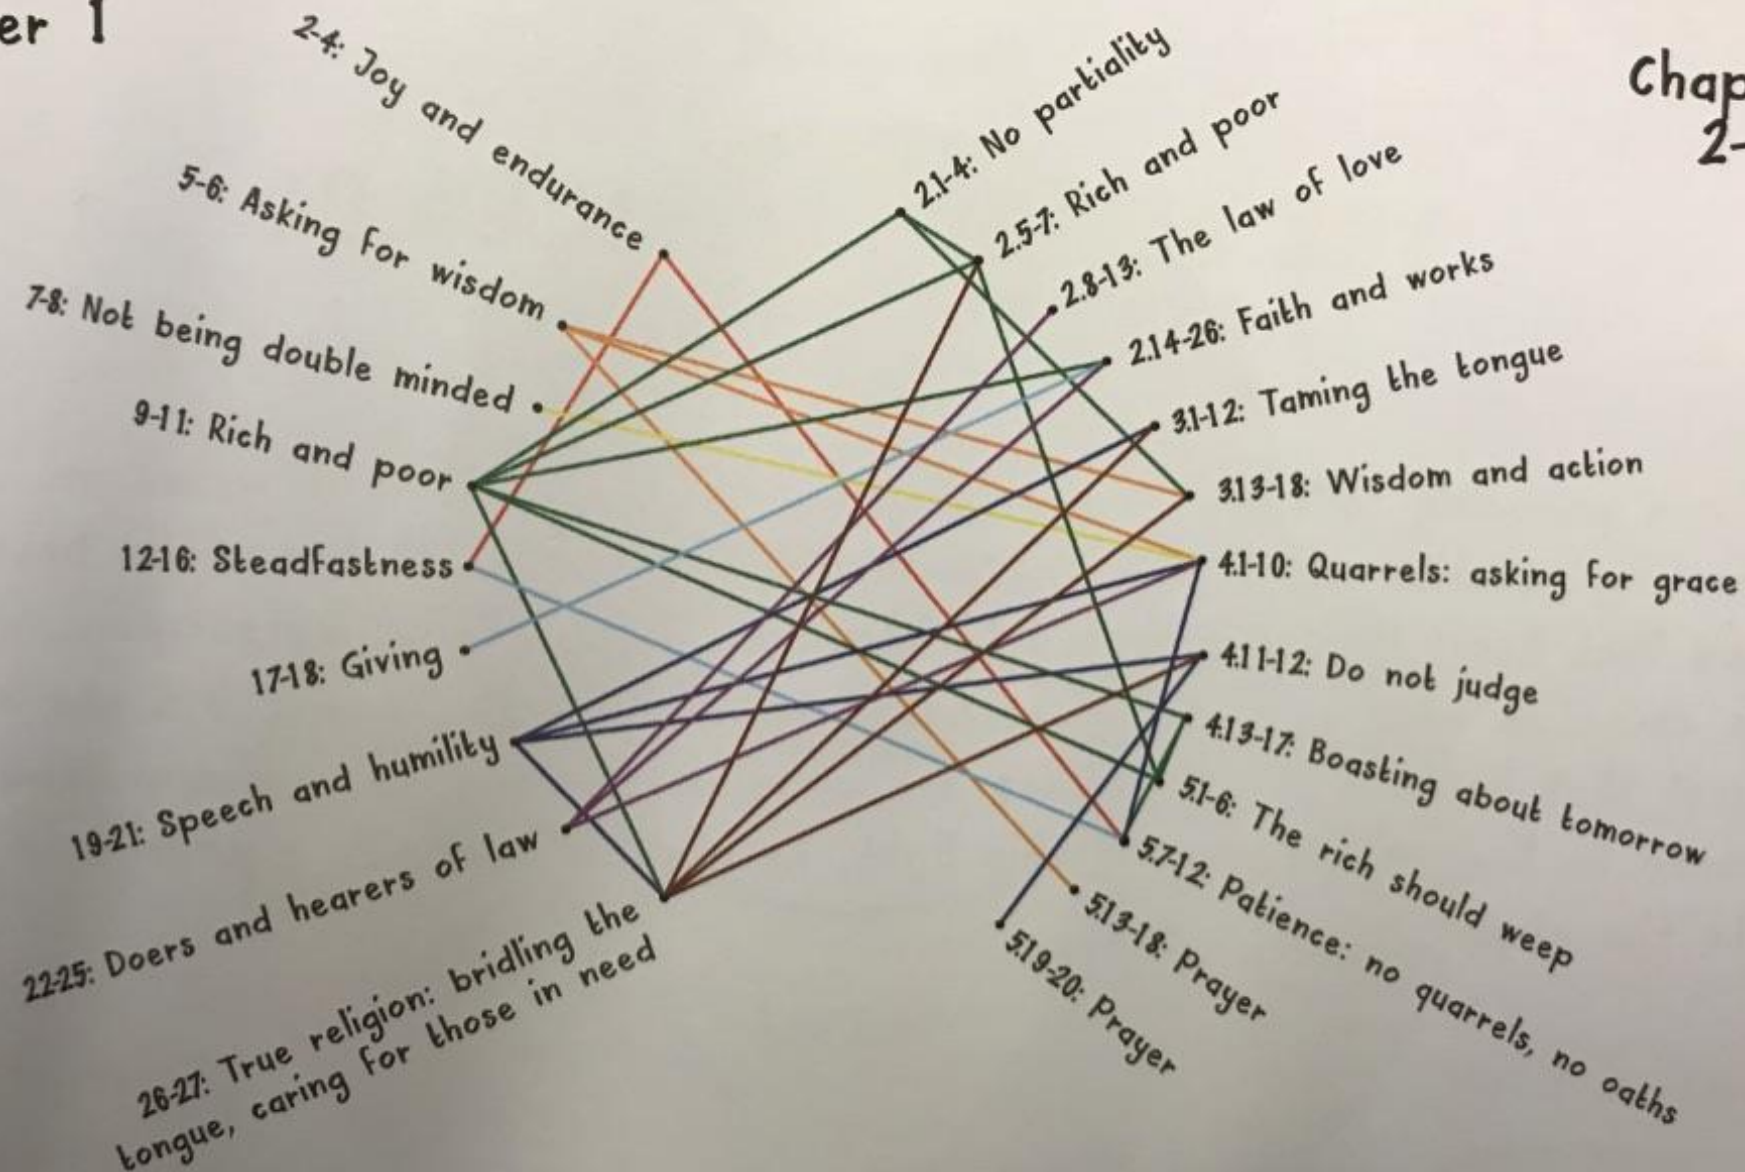 er 1
2-4: Joy and endurance
5-6: Asking for wisdom
7-8: Not being double minded
9-11: Rich and poor
12-16: Steadfastness
17-18: Giving
19-21: Speech and humility
22-25: Doers and hearers of law
26-27: True religion: bridling the
tongue, caring for those in need
Chap
2-
2.1-4: No partiality
2.5-7: Rich and poor
2.8-13: The law of love
2.14-26: Faith and works
3.1-12: Taming the tongue
3.13-18: Wisdom and action
4.1-10: Quarrels: asking for grace
4.11-12: Do not judge
4.13-17: Boasting about tomorrow
5.1-6: The rich should weep
5.7-12: Patience: no quarrels, no oaths
5.13-18: Prayer
5.19-20: Prayer